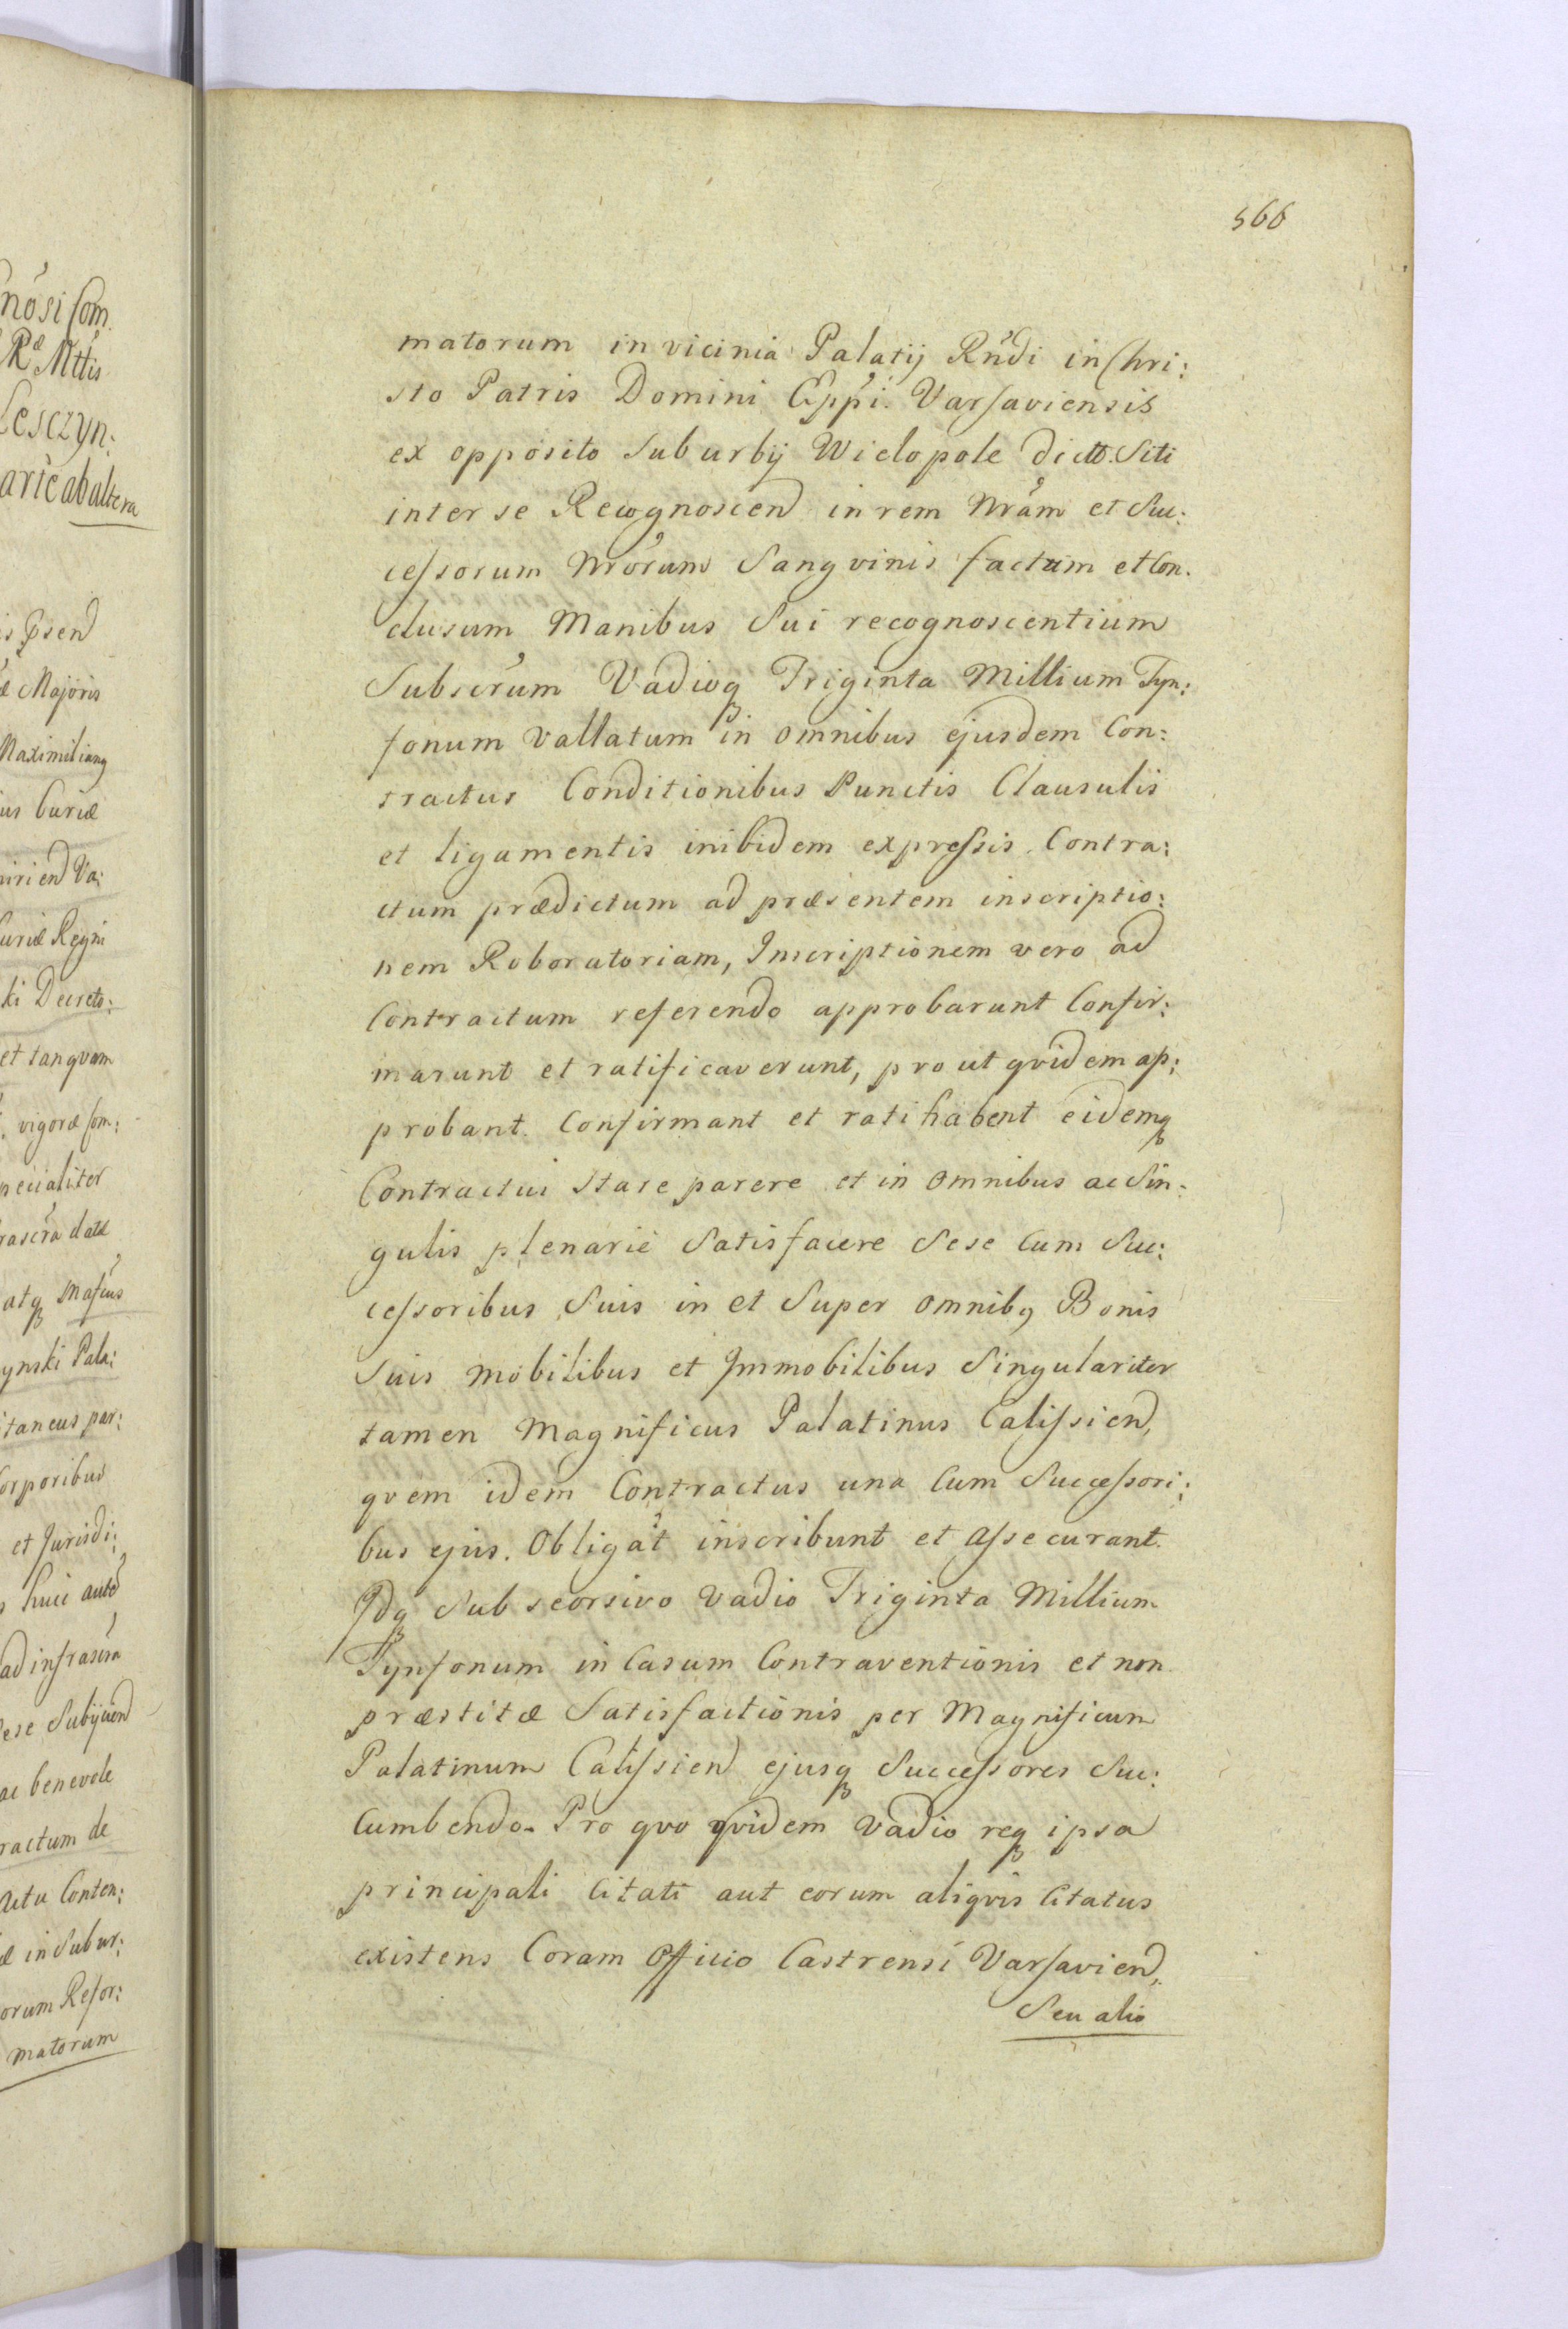 nosi Com.
Rᵃ Mttis
Lesczyn:
arie ab altera
Majoris
Maximilianq
us Curiæ
uriend Va:
Curiæ Regni
ki Decreto:
et tanqvam
vigoræ com:
pecialiter
rascra datæ
atq masius
ynski Pala:
itaneus par:
Corporibus
et Jurisdi:
huic
ad infrascra
sese Subijciend
ac benevole
ractum de
Actu Conten:
æ in Subur:
orum Refor:
matorum
566
matorum in vicinia Palatij Rndi in Chri:
sto Patris Domini Eppi. Varsaviensis
ex opposito Suburbij Wielopole dict. Siti
inter se Recognoscend in rem Nram et Suc:
cessorum Nrorum Sangvinis factum et Con:
clusum Manibus Sui recognoscentium
Subscrum Vadioq Triginta Millium Tyn:
fonum vallatum in omnibus ejusdem Con:
tractus Conditionibus Punctis Clausulis
et ligamentis inibidem expressis. Contra:
ctum prædictum ad præsentem inscriptio:
nem Roboratoriam, Inscriptionem vero ad
Contractum referendo approbarunt Confir:
marunt et ratificaverunt, prout qvidem ap:
probant. Confirmant et ratihabent eidemq
Contractui Stare parere et in omnibus ac Sin:
gulis plenarie Satisfacere Sese Cum Suc:
cessoribus Suis in et Super omnibq Bonis
Suis mobilibus et Immobilibus Singulariter
tamen Magnificus Palatinus Calissiend,
qvem idem Contractus una Cum Successori:
bus ejus. Obligat inscribunt et Assecurant.
Idq Sub seorsivo Vadio Triginta Millium
Tynfonum in Casum Contraventionis et non
præstitæ Satisfactionis per Magnificum
Palatinum Calissiend ejusq Successores Suc:
Cumbendo. Pro qvo qvidem Vadio req ipsa
principali Citati aut eorum aliqvis Citatus
existens Coram Officio Castrensi Varsaviend,
Seu alio